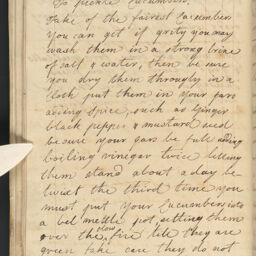 To pickle Cucumbers.
Take of the fairest Cucumbers
you can get if gritty you may
wash them in a strong brine
of salt & water, then be sure
you dry them throughly in a
cloth put them in your jars
adding spice, such as Ginger
black pepper & mustard seed
be sure your jars be full adding
boiling vinegar twice letting
them stand about a day be-
twixt the third time you
must put your Cucumbers into
a bel mettle pot, setting them
over the slow fire till they are
green take care they do not